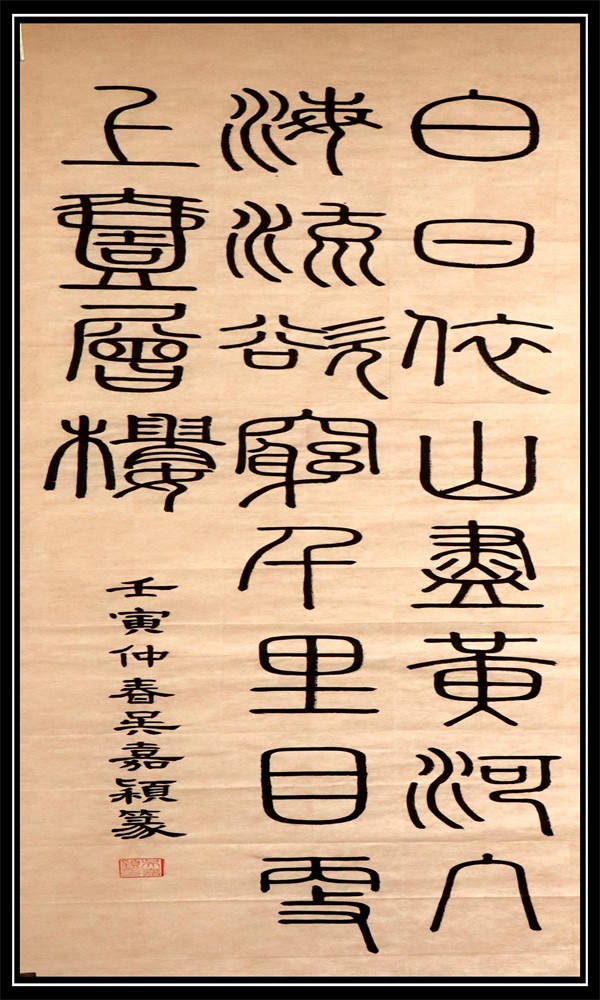 白日依山盡黃河入
海流欲窮千里目更
上臺層樓
壬寅仲春吳嘉穎篆